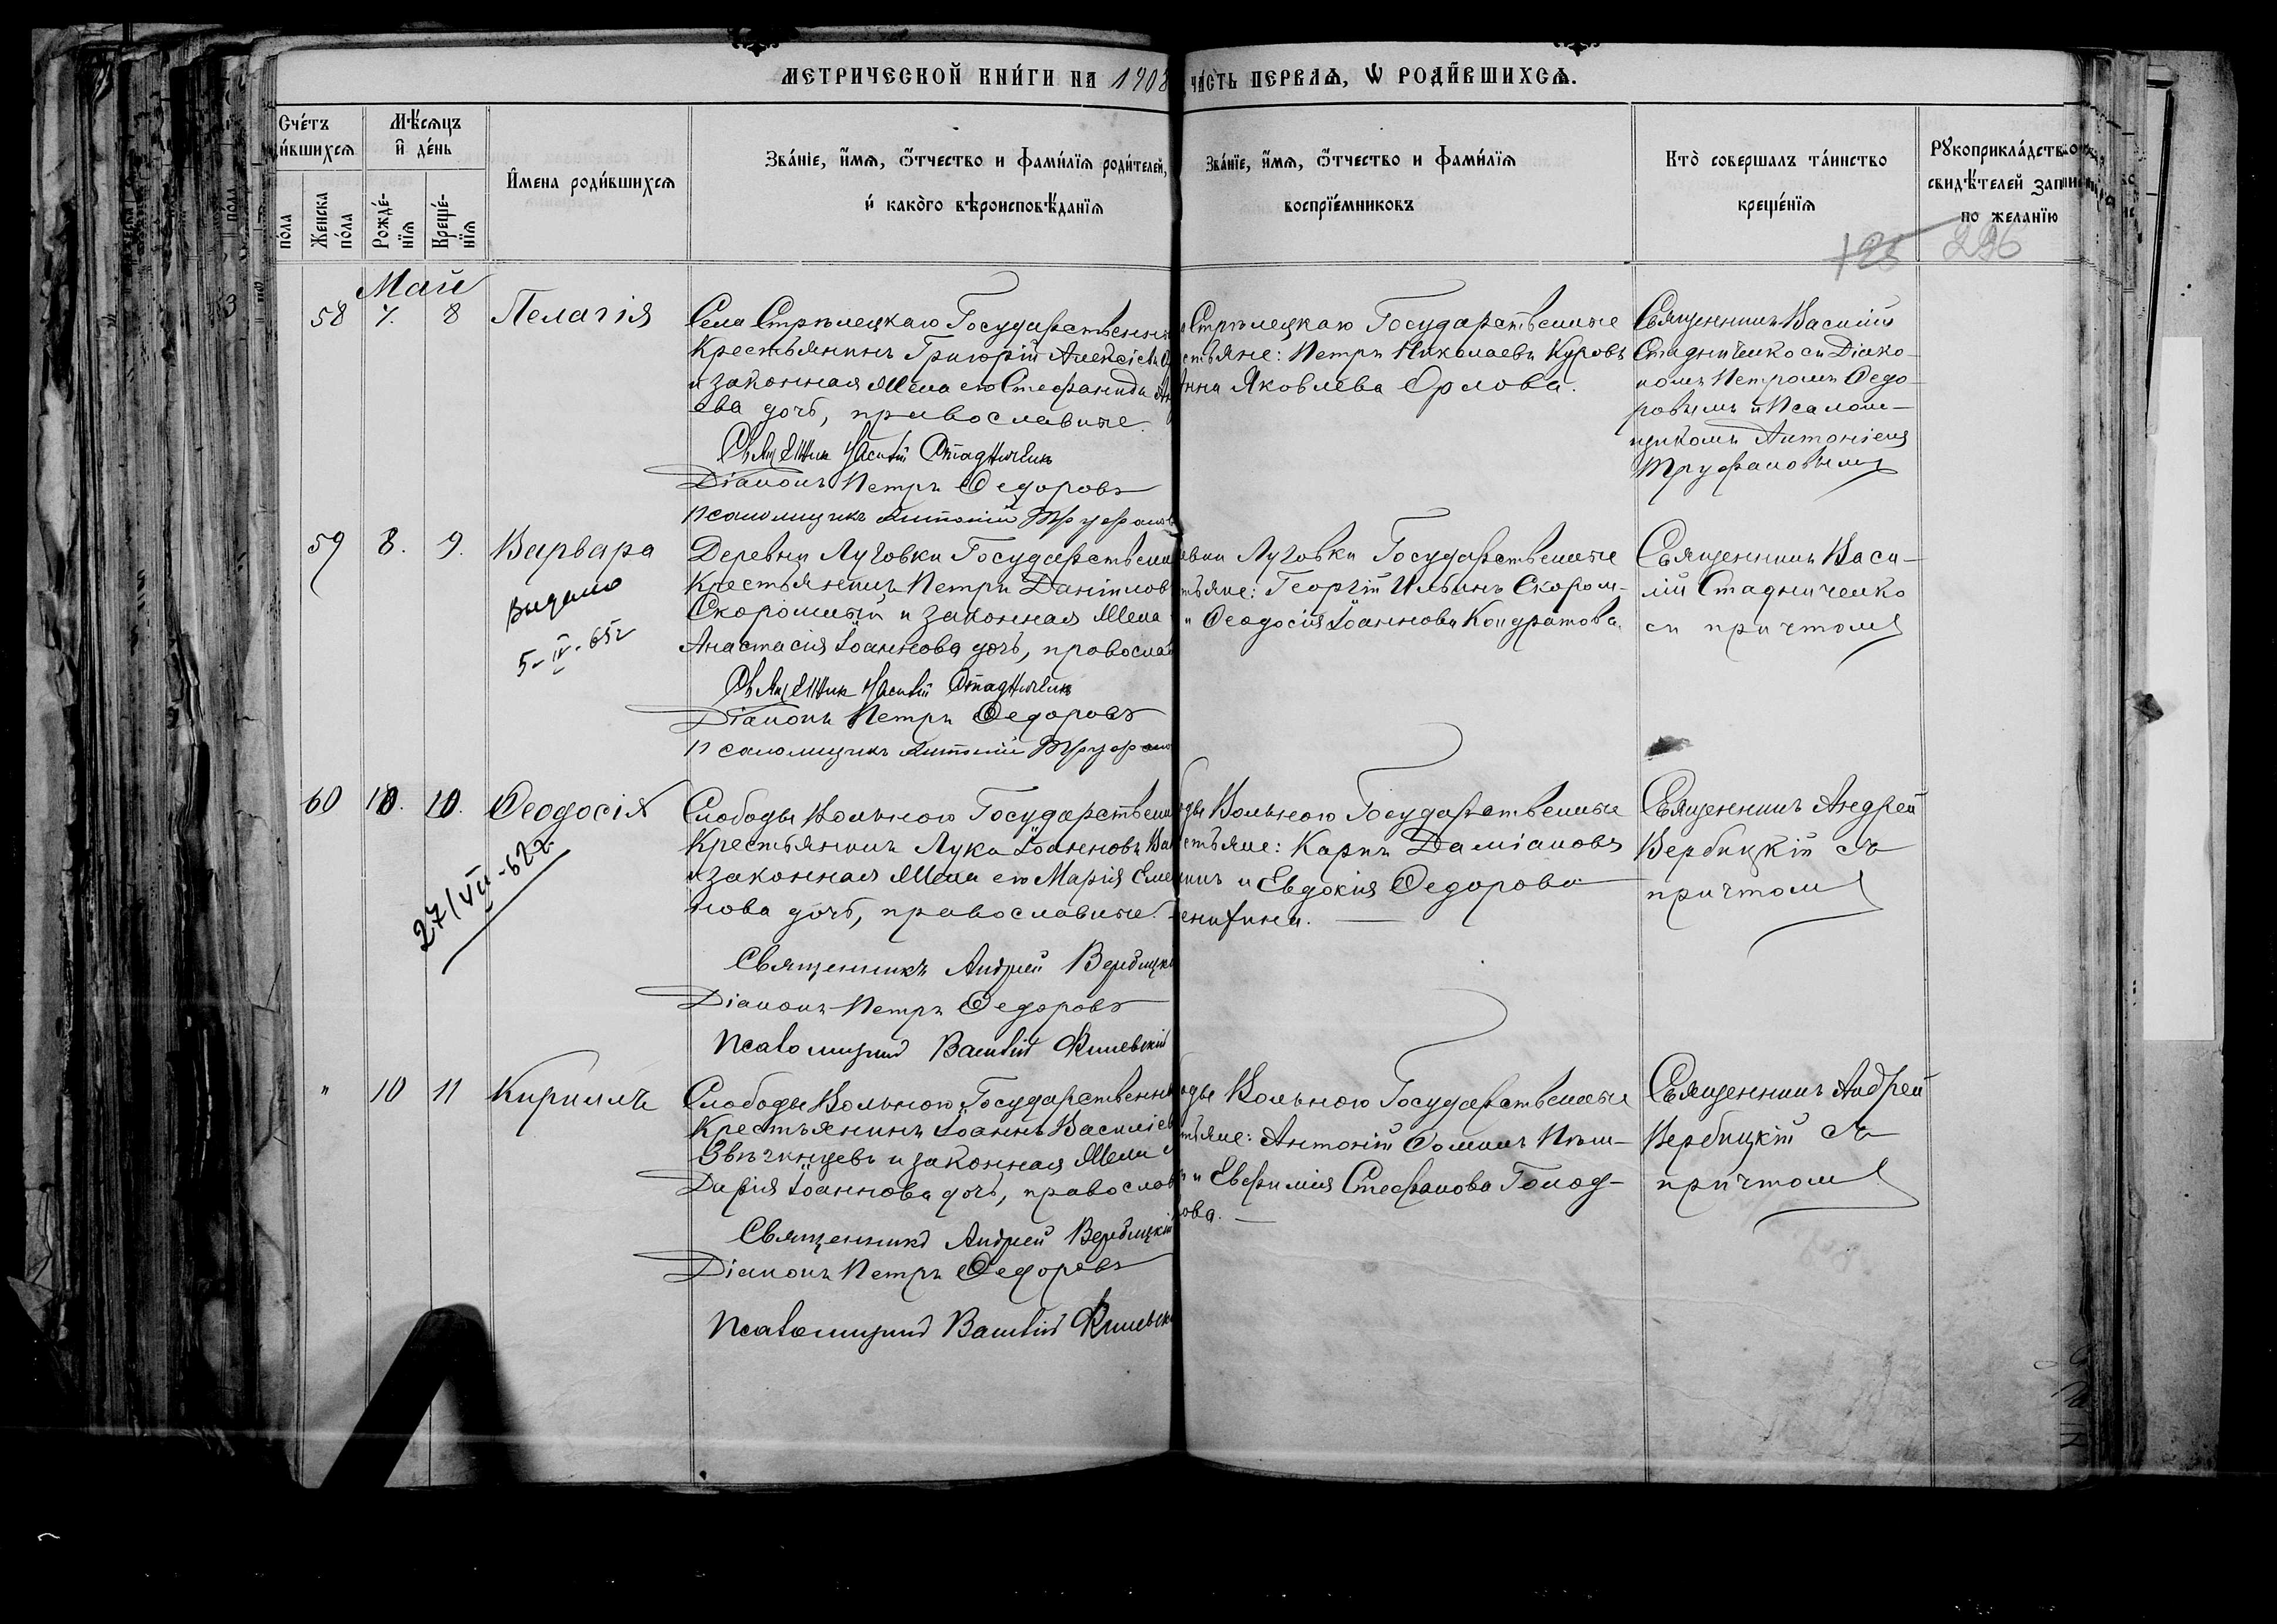 МЕТРИЧЕСКОЙ КНИ́ГИ НА 1908
ЧА́СТЬ ПЕРВАѦ, Ѡ РОДИ́ВШИХСѦ.
Сче́тъ
и́вшихсѧ
Мѣ́сѧцъ
и де́нь
пола
Же́нска
по́ла
Рожде́-
нїѧ
Креще́-
нїѧ
И҆мена роди́вшихсѧ
Зва́нїе, и҆́мѧ, ѻ҆́тчество и фами́лїѧ роди́телей,
и҆ како́гѡ вѣроисповѣ́данїѧ
Зва́нїе, и҆́мѧ, ѻ҆́тчество и фами́лїѧ
воспрїе́мниковъ
Кто̀ совершалъ та́инство
креще́нїѧ
Рꙋкоприкла́дство
свидѣ́телей записи
по жела́нїю
126 296
Май
58 7. 8 Пелагія
Села Стрѣлецкаго Государственны
Крестьянинъ Григорій Алексіевъ
и законная жена его Стефанида Ан
ева дочь, православные.
Священник Василій Стадниченко
Діаконъ Петръ Ѳедоровъ
Псаломщикъ Антоній Труфановъ
Стрѣлецкаго Государственные
стьяне: Петръ Николаевъ Куровъ
Анна Яковлева Орлова.
Священникъ Василій
Стадниченко съ Діако-
номъ Петромъ Ѳедо-
ровымъ и Псалом-
щикомъ Антоніемъ
Труфановымъ
59 8. 9. Варвара
Выдано
5-IV-65г
Деревни Луговки Государствени
Крестьянинъ Петръ Даніиловъ
Скоромный и законная жена
Анастасія Іоаннова дочь, православ
Священник Василій Стадниченко
Діаконъ Петръ Ѳедоровъ
Псаломщикъ Антоній Труфано
евни Луговки Государственные
тьяне: Георгій Ильинъ Скором-
и Ѳеодосія Іоаннова Кондратова.
Священникъ Васи-
лій Стадниченко
съ причтомъ
60 10. 10. Ѳеодосія
27/VII-62г.
Слободы Вольного Государствени
Крестьянинъ Лука Іоанновъ Ва
и законная жена его Марія Симе
нова дочь, православные.
Священникъ Андрей Вербицкі
Діаконъ Петръ Ѳедоровъ
Псаломщикъ Василій
ды Вольного Государственные
стьяне: Карпъ Даміановъ
инъ и Евдокія Ѳедорова
Священникъ Андрей
Вербицкій съ
причтомъ
" 10 11 Кириллъ
Слободы Вольного Государственны
Крестьянинъ Іоаннъ Василіев
Звѣгинцевъ и законная жена
Дарія Іоаннова дочь, православ
Священникъ Андрей Вербицкій
Діаконъ Петръ Ѳедоровъ
Псаломщикъ Василій
оды Вольного Государственные
тьяне: Антоній Ѳоминъ Пѣш-
и Евфимія Стефанова Голод-
ова.
Священникъ Андрей
Вербицкій съ
причтомъ